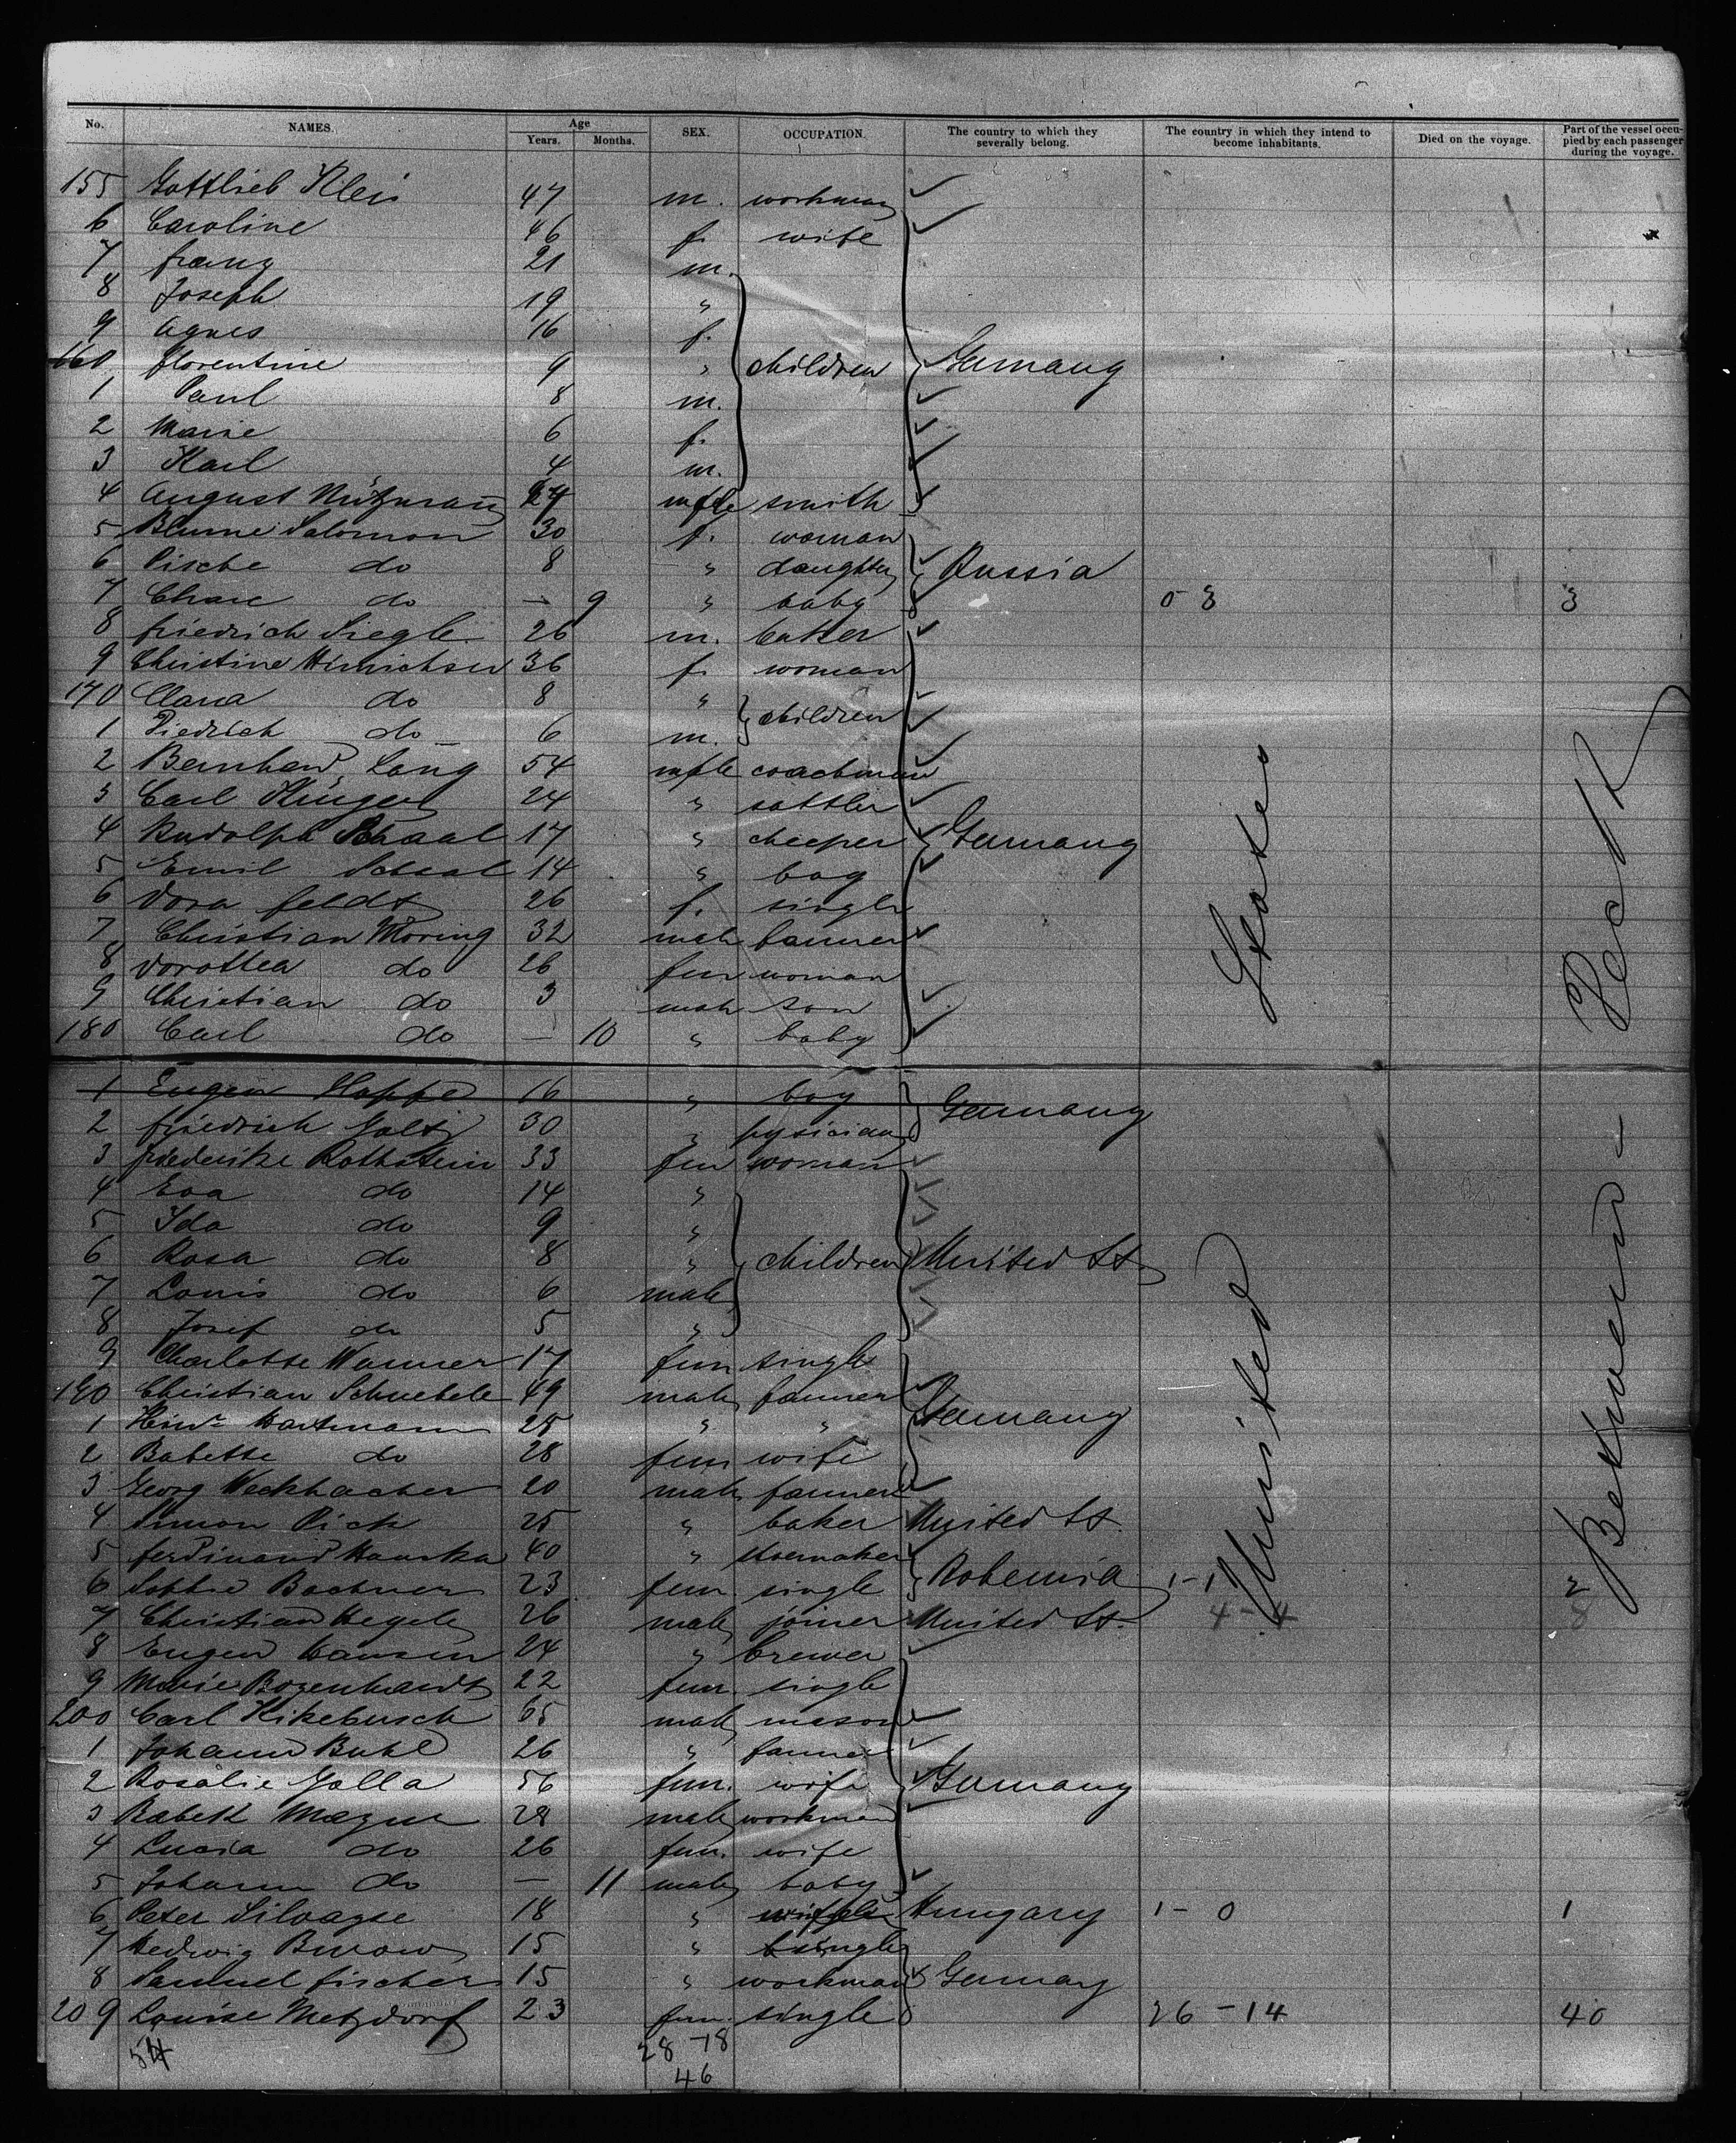 No. NAMES. Age Years. Months. SEX. OCCUPATION. The country to which they severally belong. The country in which they intend to become inhabitants. Died on the voyage. Part of the vessel occupied by each passenger during the voyage.
155 Gottlieb Klein 47 m. workman
6 Caroline 46 f. wife
7 franz 21 m.
8 Joseph 19 "
9 Agnes 16 f.
160 florentine 9 " children Germany
1 Paul 8 m.
2 Marie 6 f.
3 Karl 4 m.
4 August 24 male smith
5 Blume Salomon 30 f. woman
6 Pische do 8 " daughter Russia
7 Chaie do — 9 " baby 0-3 3
8 friedrich Siegle 26 m. baker
9 Christine Hinrichsen 36 f. woman
170 Clara do 8 " children
1 Diedrich do 6 m.
2 Bernhard Lang 54 male coachman
3 Carl 24 " sattler
4 Rudolph Schaal 17 " Germany
5 Emil Schaal 14 " boy
6 Dora feldt 26 f. single
7 Christian Möring 32 male farmer
8 Dorothea do 26 fem woman
9 Christian do 3 male son
180 Carl do — 10 " baby
1 Eugen Hoppe 16 " boy Germany
2 friedrich 30 " pysician
3 friederike Rothstein 33 fem woman
4 Eva do 14 "
5 Ida do 9 "
6 Rosa do 8 " children United St
7 Louis do 6 male
8 Josef do 5 "
9 Charlotte Wanner 17 fem single
190 Christian Schnebele 49 male farmer Germany
1 Hinr Hartmann 25 " "
2 Babette do 28 fem wife
3 Georg 20 male farmer
4 Simon Pick 25 " baker United St.
5 ferdinand Hanska 40 " shoemaker Bohemia
6 Sophie Bachner 23 fem. single 1-1 2
7 Christian Hegele 26 male joiner United St. 4-4 8
8 Eugen 24 " brewer
9 Marie Bozenhardt 22 fem. single
200 Carl Kikebusch 65 male mason
1 Johann Buhl 26 " farmer
2 Rosalie Galla 56 fem. wife Germany
3 28 male workman
4 Lucia do 26 fem. wife
5 Johann do — 11 male baby
6 Peter 18 " Hungary 1-0 1
7 Hedwig 15 " single
8 Samuel fischer 15 " workman Germany
209 Louise Metzdorf 23 fem. single 26-14 40
54 28-18
46
United States
Between Deck